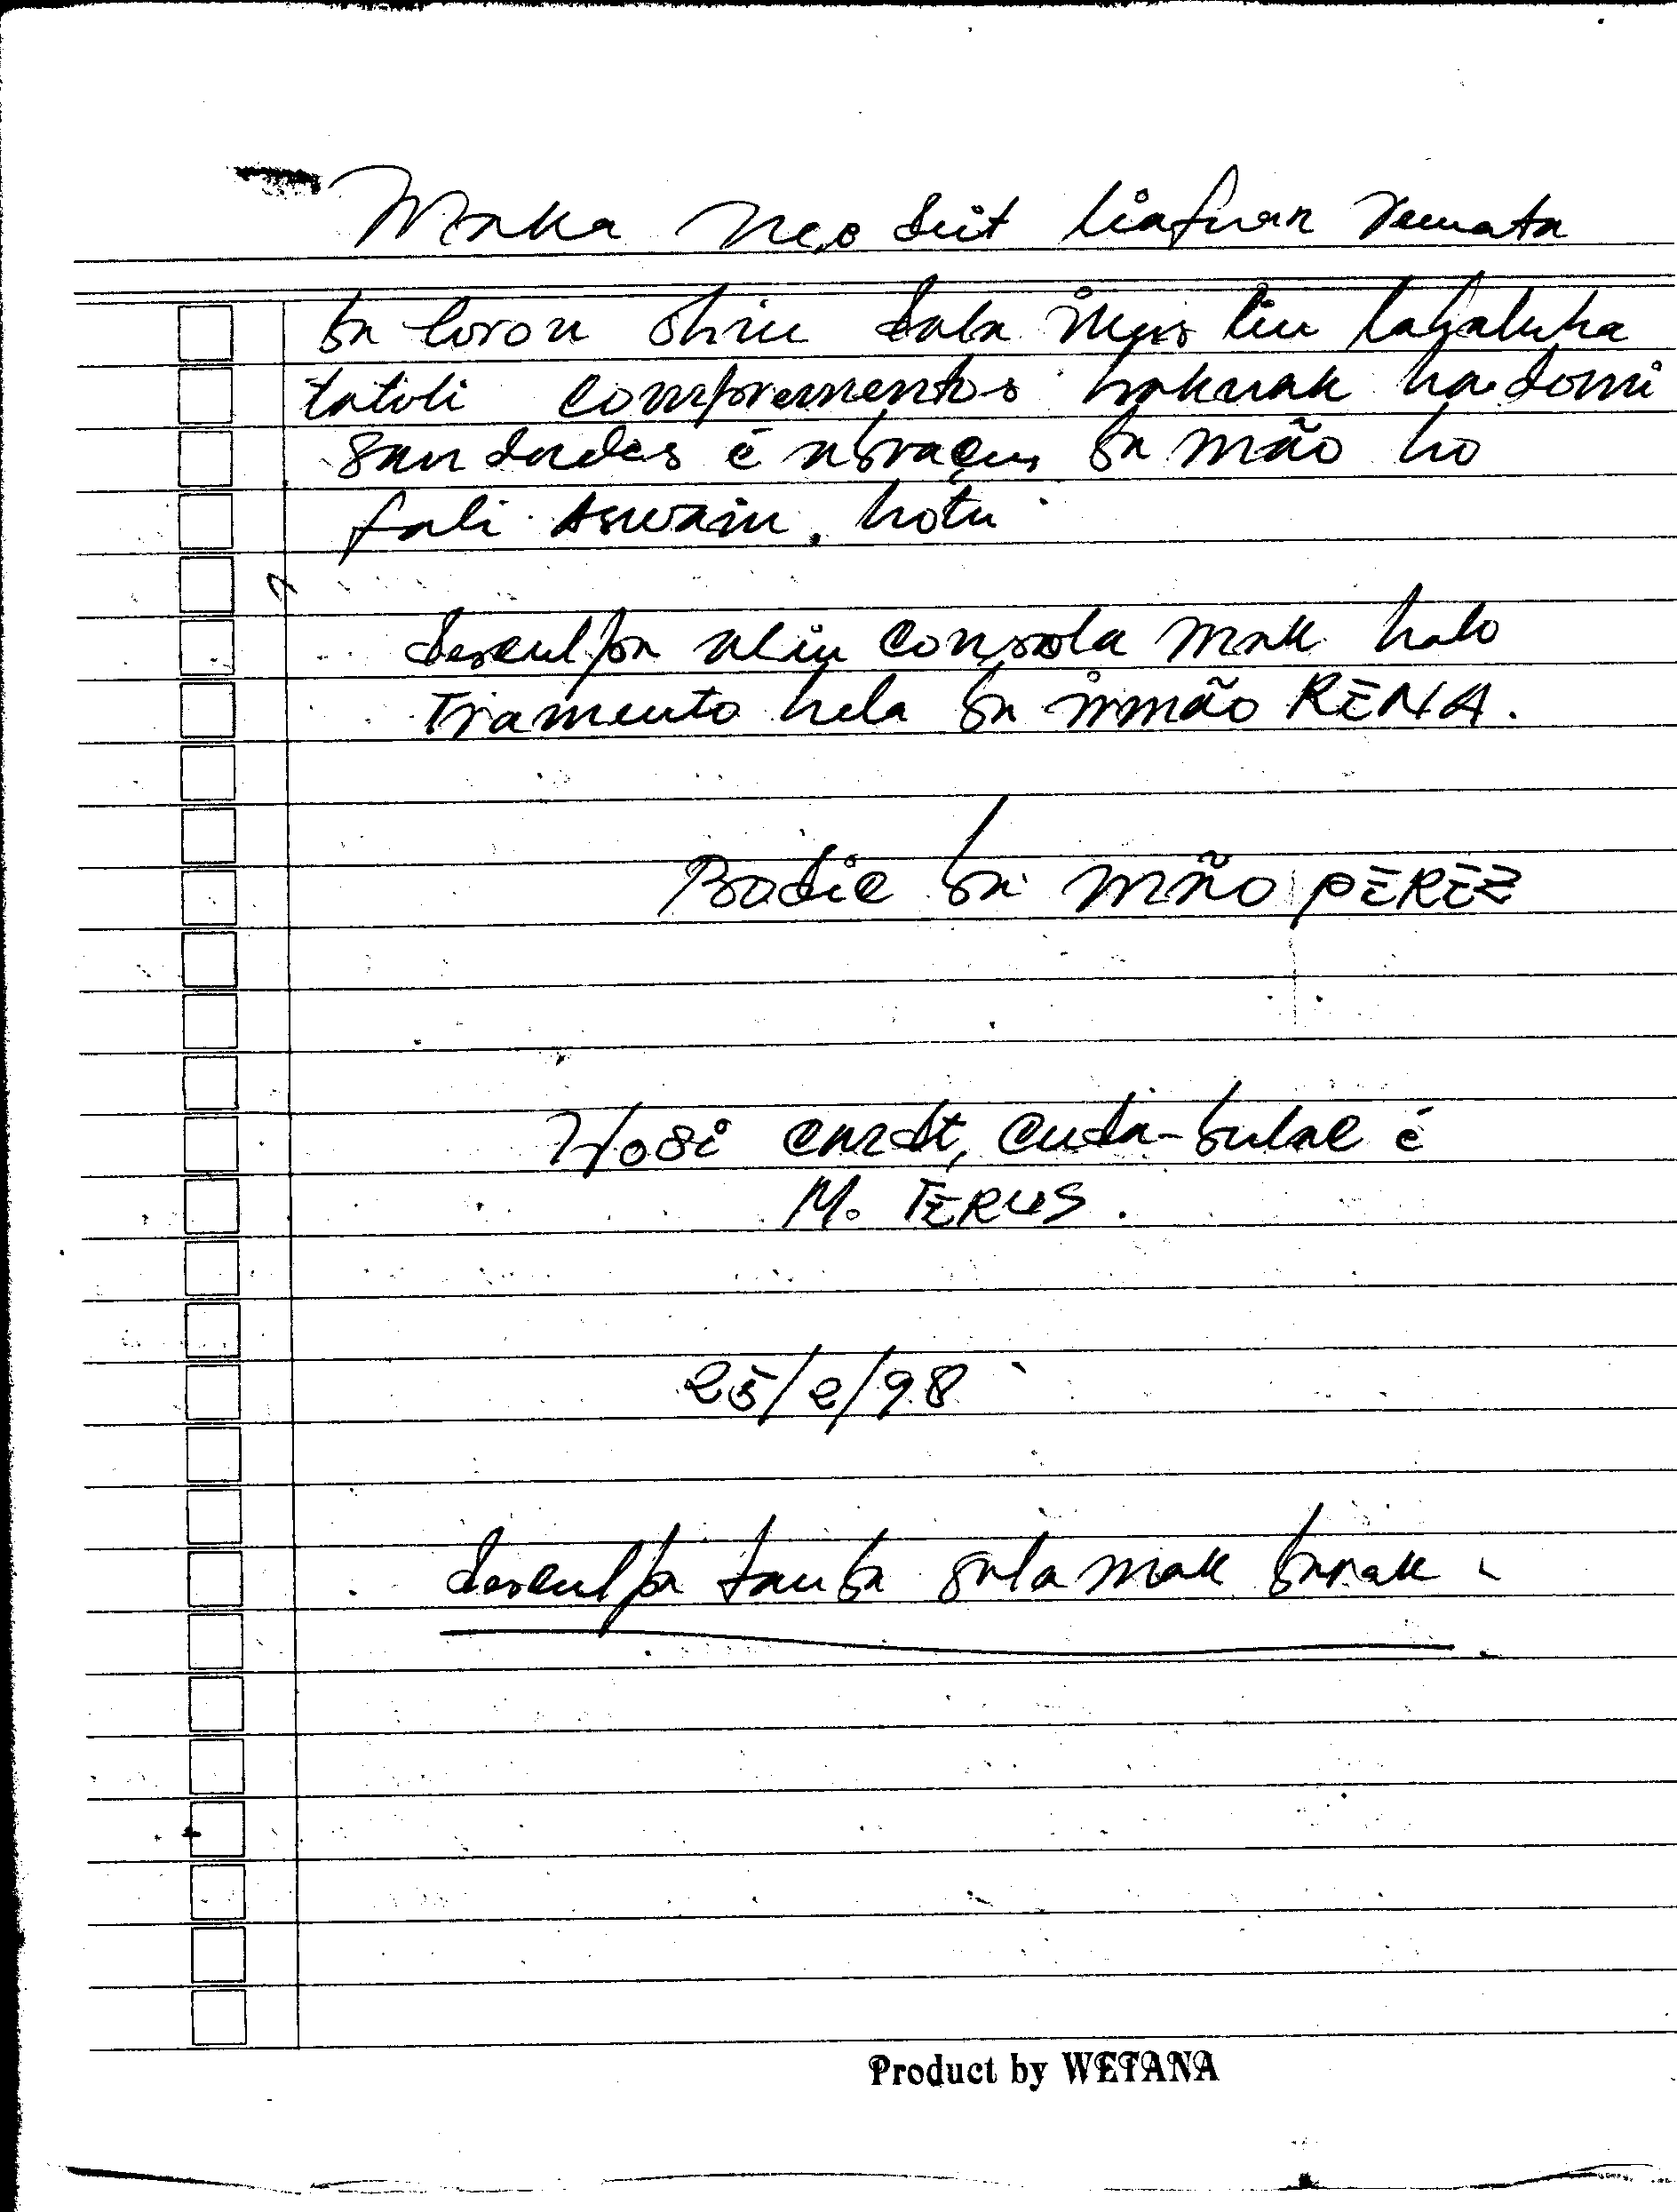 Maka neo deit liafuan remata
ba loron ohin dala imus liu lahaluha
tatoli comprementos hakuak hadomi
saudades é abraços ba mão ho
fali Aswain, hotu
desculpa aliu consola mak halo
Tramento hela ba irmão RENA.
Bodic ba mão PEREZ
Hosi cazdt, cuda-bulac é
M. TERUS.
25/2/98
desculpa tauba sala mak barak
Product by WETANA